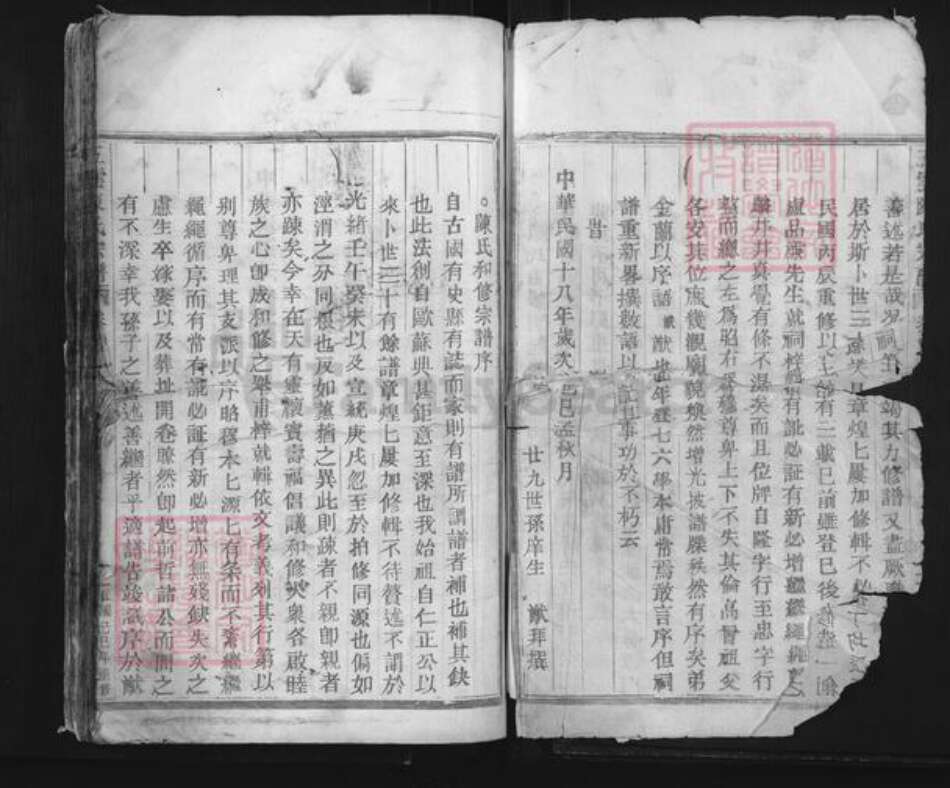 善述若是故另祠筆
竭其力修譜又盡厥
居於斯卜世三
章煌七屢加修輯不
民國丙辰重修以
有二載巳前雖登巳後
盧品 先生就祠梓 有訛必証有新必增繼繼繩繩
井井真覺有條不混矣而且位牌自隆字行至忠字行
整而總之左為昭右為穆尊卑上下不失其倫高曾祖父
各安其位庶幾觀廟貌煥然增光披譜牒秩然有序矣弟
金蘭以序請猷猷也年登七六學本庸常焉敢言序但祠
譜重新畧攄數語以誌其事功於不朽云
旹
中華民國十八年歲次己巳孟秋月
廿九世孫庠生 猷拜撰
陳氏和修宗譜序
自古國有史縣有誌而家則有譜所謂譜者補也補其缺
也此法創自歐蘇典甚鉅意至深也我始祖自仁正公以
來卜世三十有餘譜章煌七屢加修輯不待贅述不謂於
光緒壬午癸未以及宣統庚戌忽至於拍修同源也偏如
涇渭之分同根也反如薰蕕之異此則疎者不親卽親者
亦疎矣今幸在天有靈懷寶壽福倡議和修 衆各啟睦
族之心卽成和修之舉甫梓就輯依文考義列其行第以
别尊卑理其支派以序昭穆本七源七有条而不紊繼繼
繩繩循序而有常有訛必証有新必增亦無殘缺失次之
慮生卒嫁娶以及葬址開卷瞭然卽起前哲諸公而問之
有不深幸我孫子之善述善繼者乎適譜告竣 序於猷